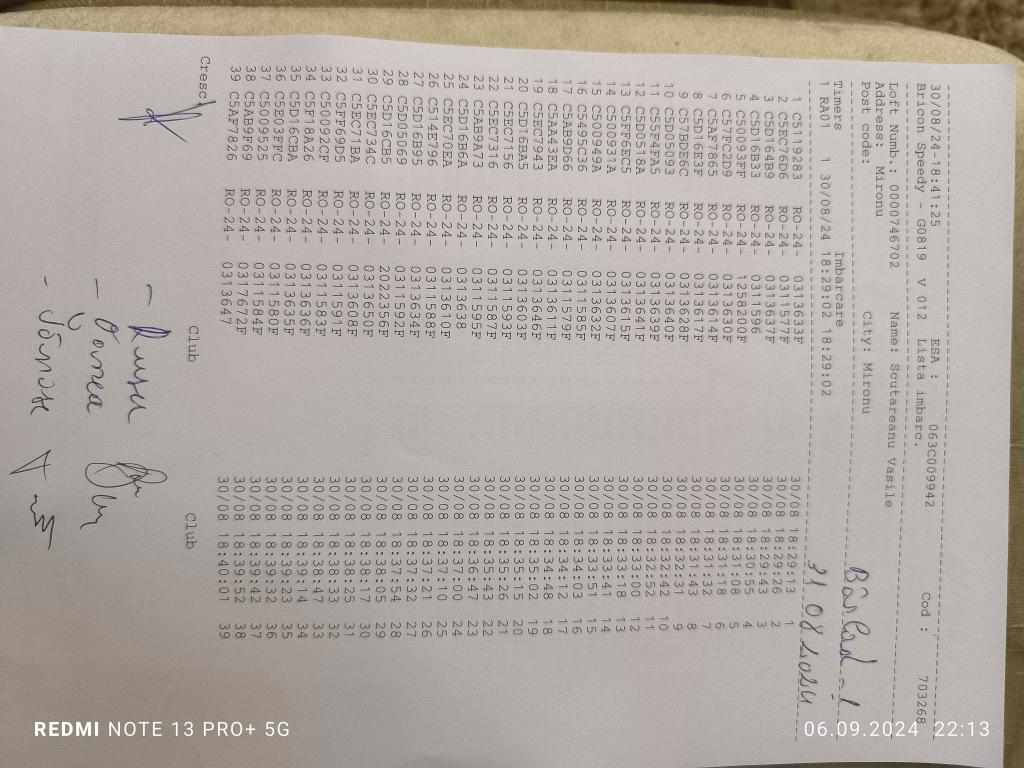 30/08/24-18:41:25 ESA : 063C009942 Cod : 703268
Bricon Speedy - G0819 V 012 Lista imbarc.
Loft Numb.: 0000746702 Name: Scutareanu Vasile
Address: Mironu City: Mironu
Post code:
Bârlad - I
Timers Imbarcare
1 RA01 1 30/08/24 18:29:02 18:29:02
31 08 2024
1 C5119283 RO-24- 0313633F 30/08 18:29:13 1
2 C5EC76D6 RO-24- 0311577F 30/08 18:29:26 2
3 C5D164B9 RO-24- 0313637F 30/08 18:29:43 3
4 C5D16B33 RO-24- 0311596 30/08 18:30:55 4
5 C50093FF RO-24- 1258200F 30/08 18:31:08 5
6 C57FC2D9 RO-24- 0313630F 30/08 18:31:18 6
7 C5AF7865 RO-24- 0313614F 30/08 18:31:32 7
8 C5D16E3F RO-24- 0313617F 30/08 18:31:43 8
9 C57BDE6C RO-24- 0313628F 30/08 18:32:31 9
10 C5D05D03 RO-24- 0313640F 30/08 18:32:42 10
11 C55F4FA5 RO-24- 0313639F 30/08 18:32:52 11
12 C5D0518A RO-24- 0313641F 30/08 18:33:00 12
13 C5FF6EC5 RO-24- 0313615F 30/08 18:33:18 13
14 C500931A RO-24- 0313607F 30/08 18:33:41 14
15 C500949A RO-24- 0313632F 30/08 18:33:51 15
16 C5495C36 RO-24- 0311585F 30/08 18:34:03 16
17 C5AB9D66 RO-24- 0311579F 30/08 18:34:12 17
18 C5AA43EA RO-24- 0313611F 30/08 18:34:48 18
19 C5EC7943 RO-24- 0313646F 30/08 18:35:02 19
20 C5D16BA5 RO-24- 0313653F 30/08 18:35:15 20
21 C5EC7156 RO-24- 0311593F 30/08 18:35:26 21
22 C5EC7316 RO-24- 0311587F 30/08 18:35:43 22
23 C5AB9A73 RO-24- 0311595F 30/08 18:36:47 23
24 C5D16B6A RO-24- 0313638 30/08 18:37:00 24
25 C5EC70EA RO-24- 0313610F 30/08 18:37:10 25
26 C514E796 RO-24- 0311588F 30/08 18:37:21 26
27 C5D16B95 RO-24- 0313634F 30/08 18:37:32 27
28 C5D05069 RO-24- 0311592F 30/08 18:37:54 28
29 C5D16CB5 RO-24- 2022356F 30/08 18:38:05 29
30 C5EC734C RO-24- 0313650F 30/08 18:38:17 30
31 C5EC71BA RO-24- 0313608F 30/08 18:38:25 31
32 C5FF69D5 RO-24- 0311591F 30/08 18:38:33 32
33 C50092CF RO-24- 0311583F 30/08 18:38:47 33
34 C5F18A26 RO-24- 0313636F 30/08 18:39:14 34
35 C5D16CBA RO-24- 0313635F 30/08 18:39:23 35
36 C5E03FFC RO-24- 0311580F 30/08 18:39:32 36
37 C5009525 RO-24- 0311584F 30/08 18:39:42 37
38 C5AB9F69 RO-24- 0317672F 30/08 18:39:52 38
39 C5AF7826 RO-24- 0313647 30/08 18:40:01 39
Cresc. Club Club
- Rusu
REDMI NOTE 13 PRO+ 5G 06.09.2024 22:13